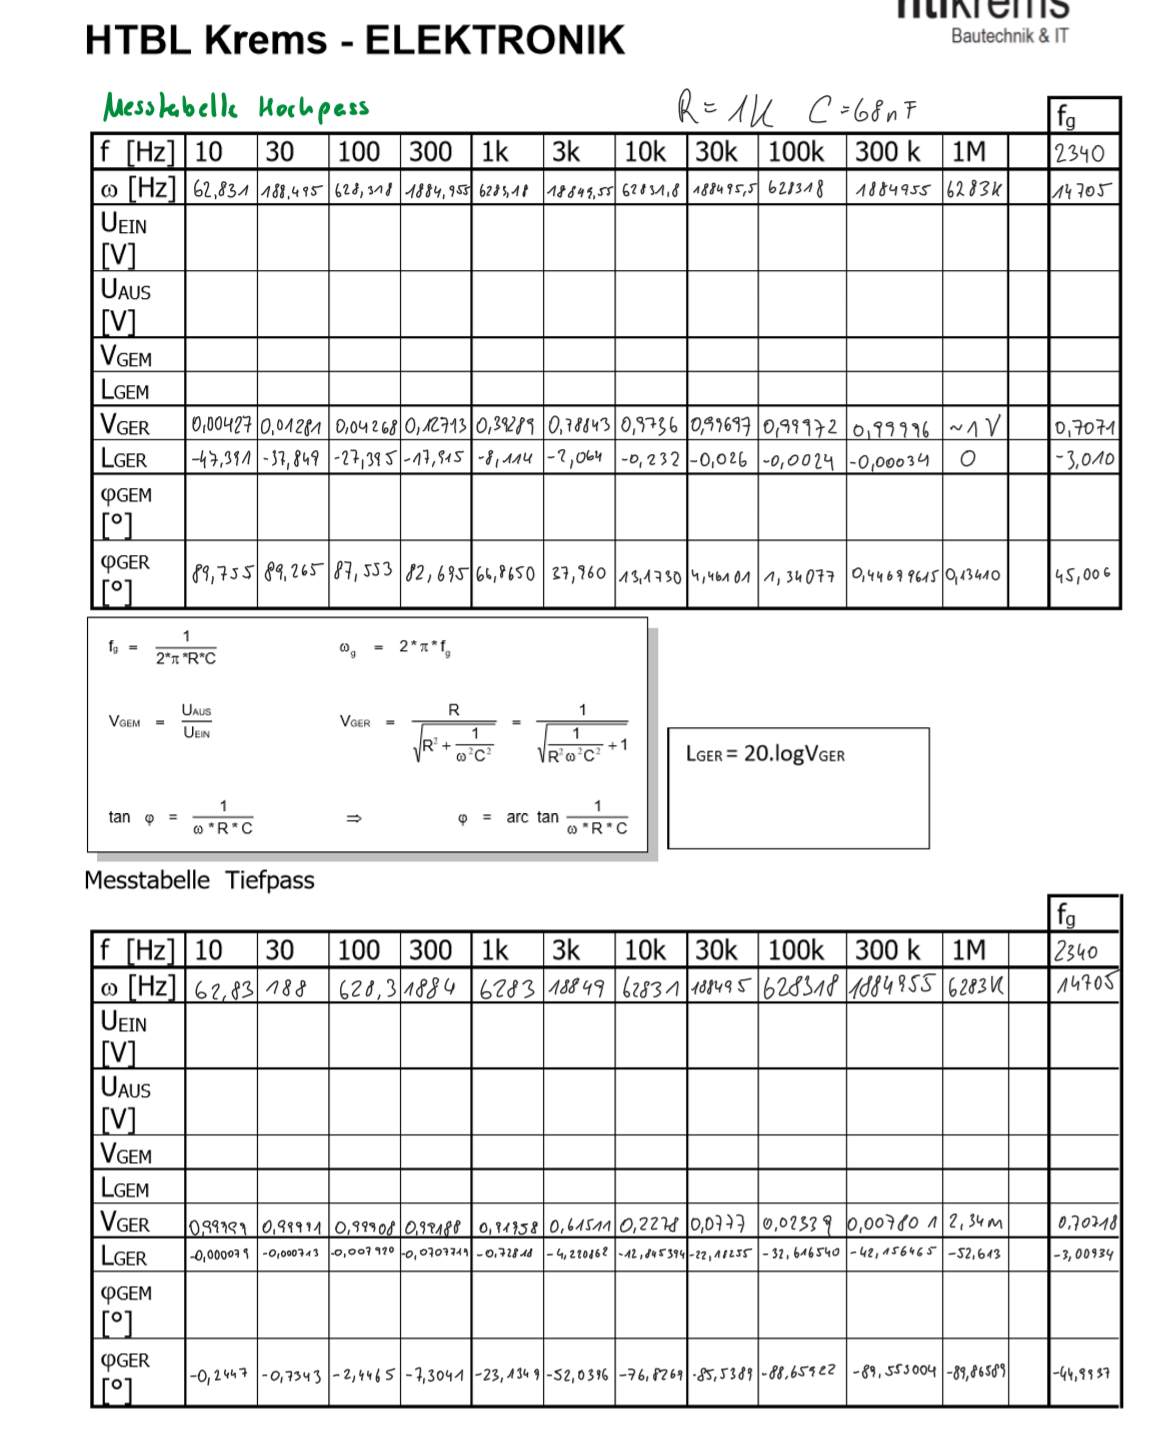 htlkrems
Bautechnik & IT
HTBL Krems - ELEKTRONIK
Messtabelle Hochpass R = 1K C = 68nF
fg
f [Hz] 10 30 100 300 1k 3k 10k 30k 100k 300 k 1M 2340
ω [Hz] 62,831 188,495 628,318 1884,955 6283,18 18849,55 62831,8 188495,5 628318 1884955 6283K 14705
UEIN
[V]
UAUS
[V]
VGEM
LGEM
VGER 0,00427 0,01281 0,04268 0,12713 0,39289 0,78843 0,9736 0,99697 0,99972 0,99996 ~1V 0,7071
LGER -47,391 -37,849 -27,395 -17,915 -8,114 -2,064 -0,232 -0,026 -0,0024 -0,00034 0 -3,010
φGEM
[°]
φGER
[°] 89,755 89,265 87,553 82,695 66,8650 37,960 13,1730 4,46101 1,34077 0,44699615 0,13410 45,006
fg = 1 / 2*π*R*C ωg = 2*π*fg
VGEM = UAUS / UEIN VGER = R / √(R² + 1 / ω²C²) = 1 / √(1 / R²ω²C² + 1)
LGER = 20.logVGER
tan φ = 1 / ω*R*C ⇒ φ = arc tan 1 / ω*R*C
Messtabelle Tiefpass
fg
f [Hz] 10 30 100 300 1k 3k 10k 30k 100k 300 k 1M 2340
ω [Hz] 62,83 188 628,3 1884 6283 18849 62831 188495 628318 1884955 6283K 14705
UEIN
[V]
UAUS
[V]
VGEM
LGEM
VGER 0,99999 0,99991 0,99908 0,99188 0,91958 0,61511 0,2278 0,0777 0,02339 0,007801 2,34m 0.70718
LGER -0,000079 -0,000713 -0,007920 -0,0707719 -0,72818 -4,220862 -12,845394 -22,18255 -32,616540 -42,156465 -52,613 -3,00934
φGEM
[°]
φGER
[°] -0,2447 -0,7343 -2,4465 -7,3041 -23,1349 -52,0396 -76,8269 -85,5389 -88,65922 -89,553004 -89,86589 -44,9937